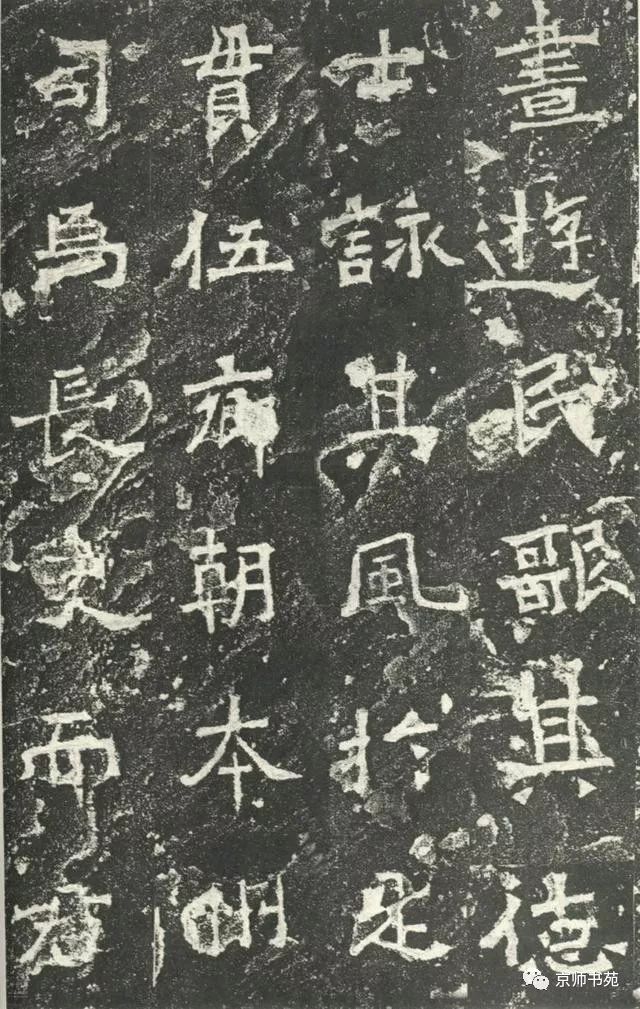 晝遊民歌其德
士詠其風於是
貫伍朝本州
司馬長史而
京师书苑